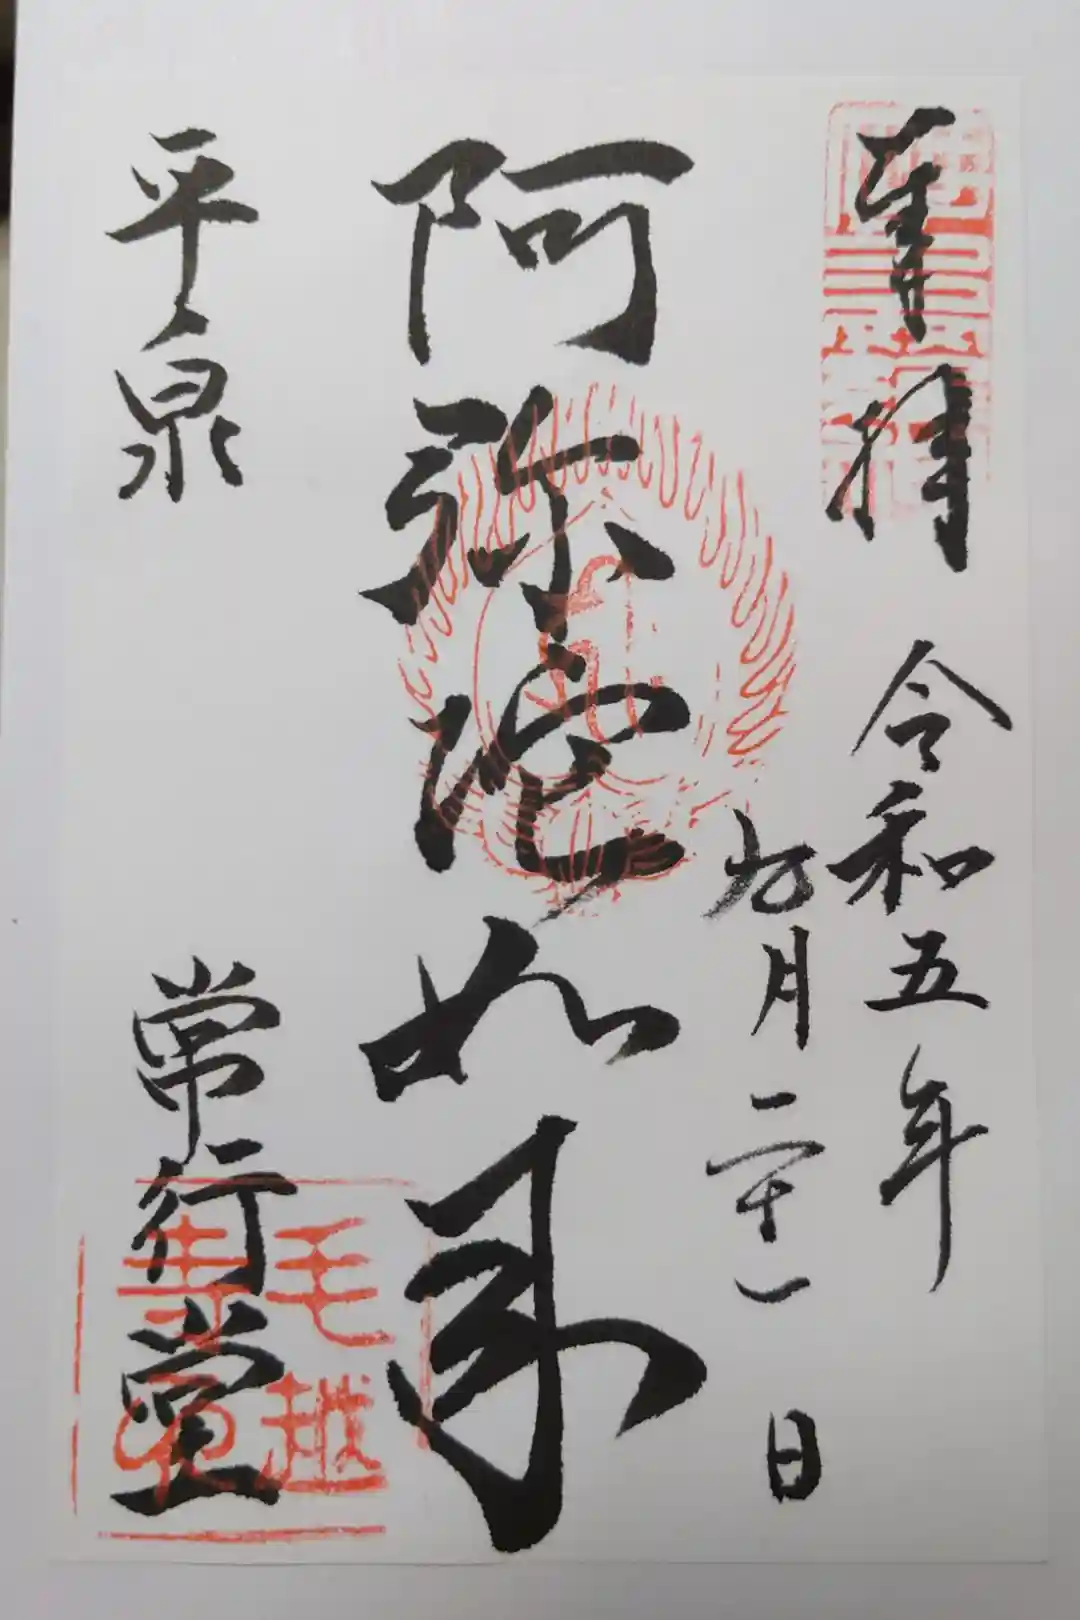 奉拝
令和五年
九月二十一日
阿弥陀如来
平泉
常行堂
毛越
寺印